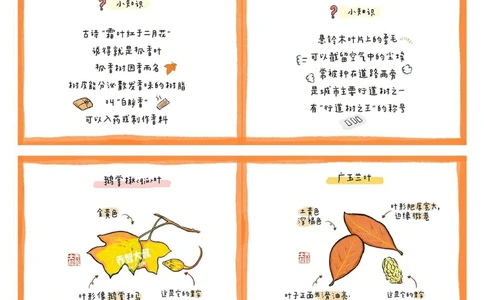 小知识
古诗“霜叶红于二月花”
说得就是枫香叶
枫香树因香而名
树皮能分泌散发香味的树脂
叫“白胶香”
可以入药或制作香料
小知识
悬铃木叶片上的茸毛
可以截留空气中的尘埃
常被种在道路两旁
是城市主要行道树之一
有“行道树之王”的称号
鹅掌楸(qiū)叶
金黄色
叶影像鹅掌和马
这是它的果实
广玉兰叶
土黄色
深褐色
叶影肥厚宽大,
边缘微卷
叶子正面光滑油亮,
这是它的果实